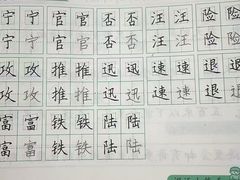 宁宁官官否否汪汪险险
宁宁官官否否汪汪险险
攻攻推推迅迅速速退退
攻攻推推迅迅速速退退
富富铁铁陆陆
富富铁铁陆陆